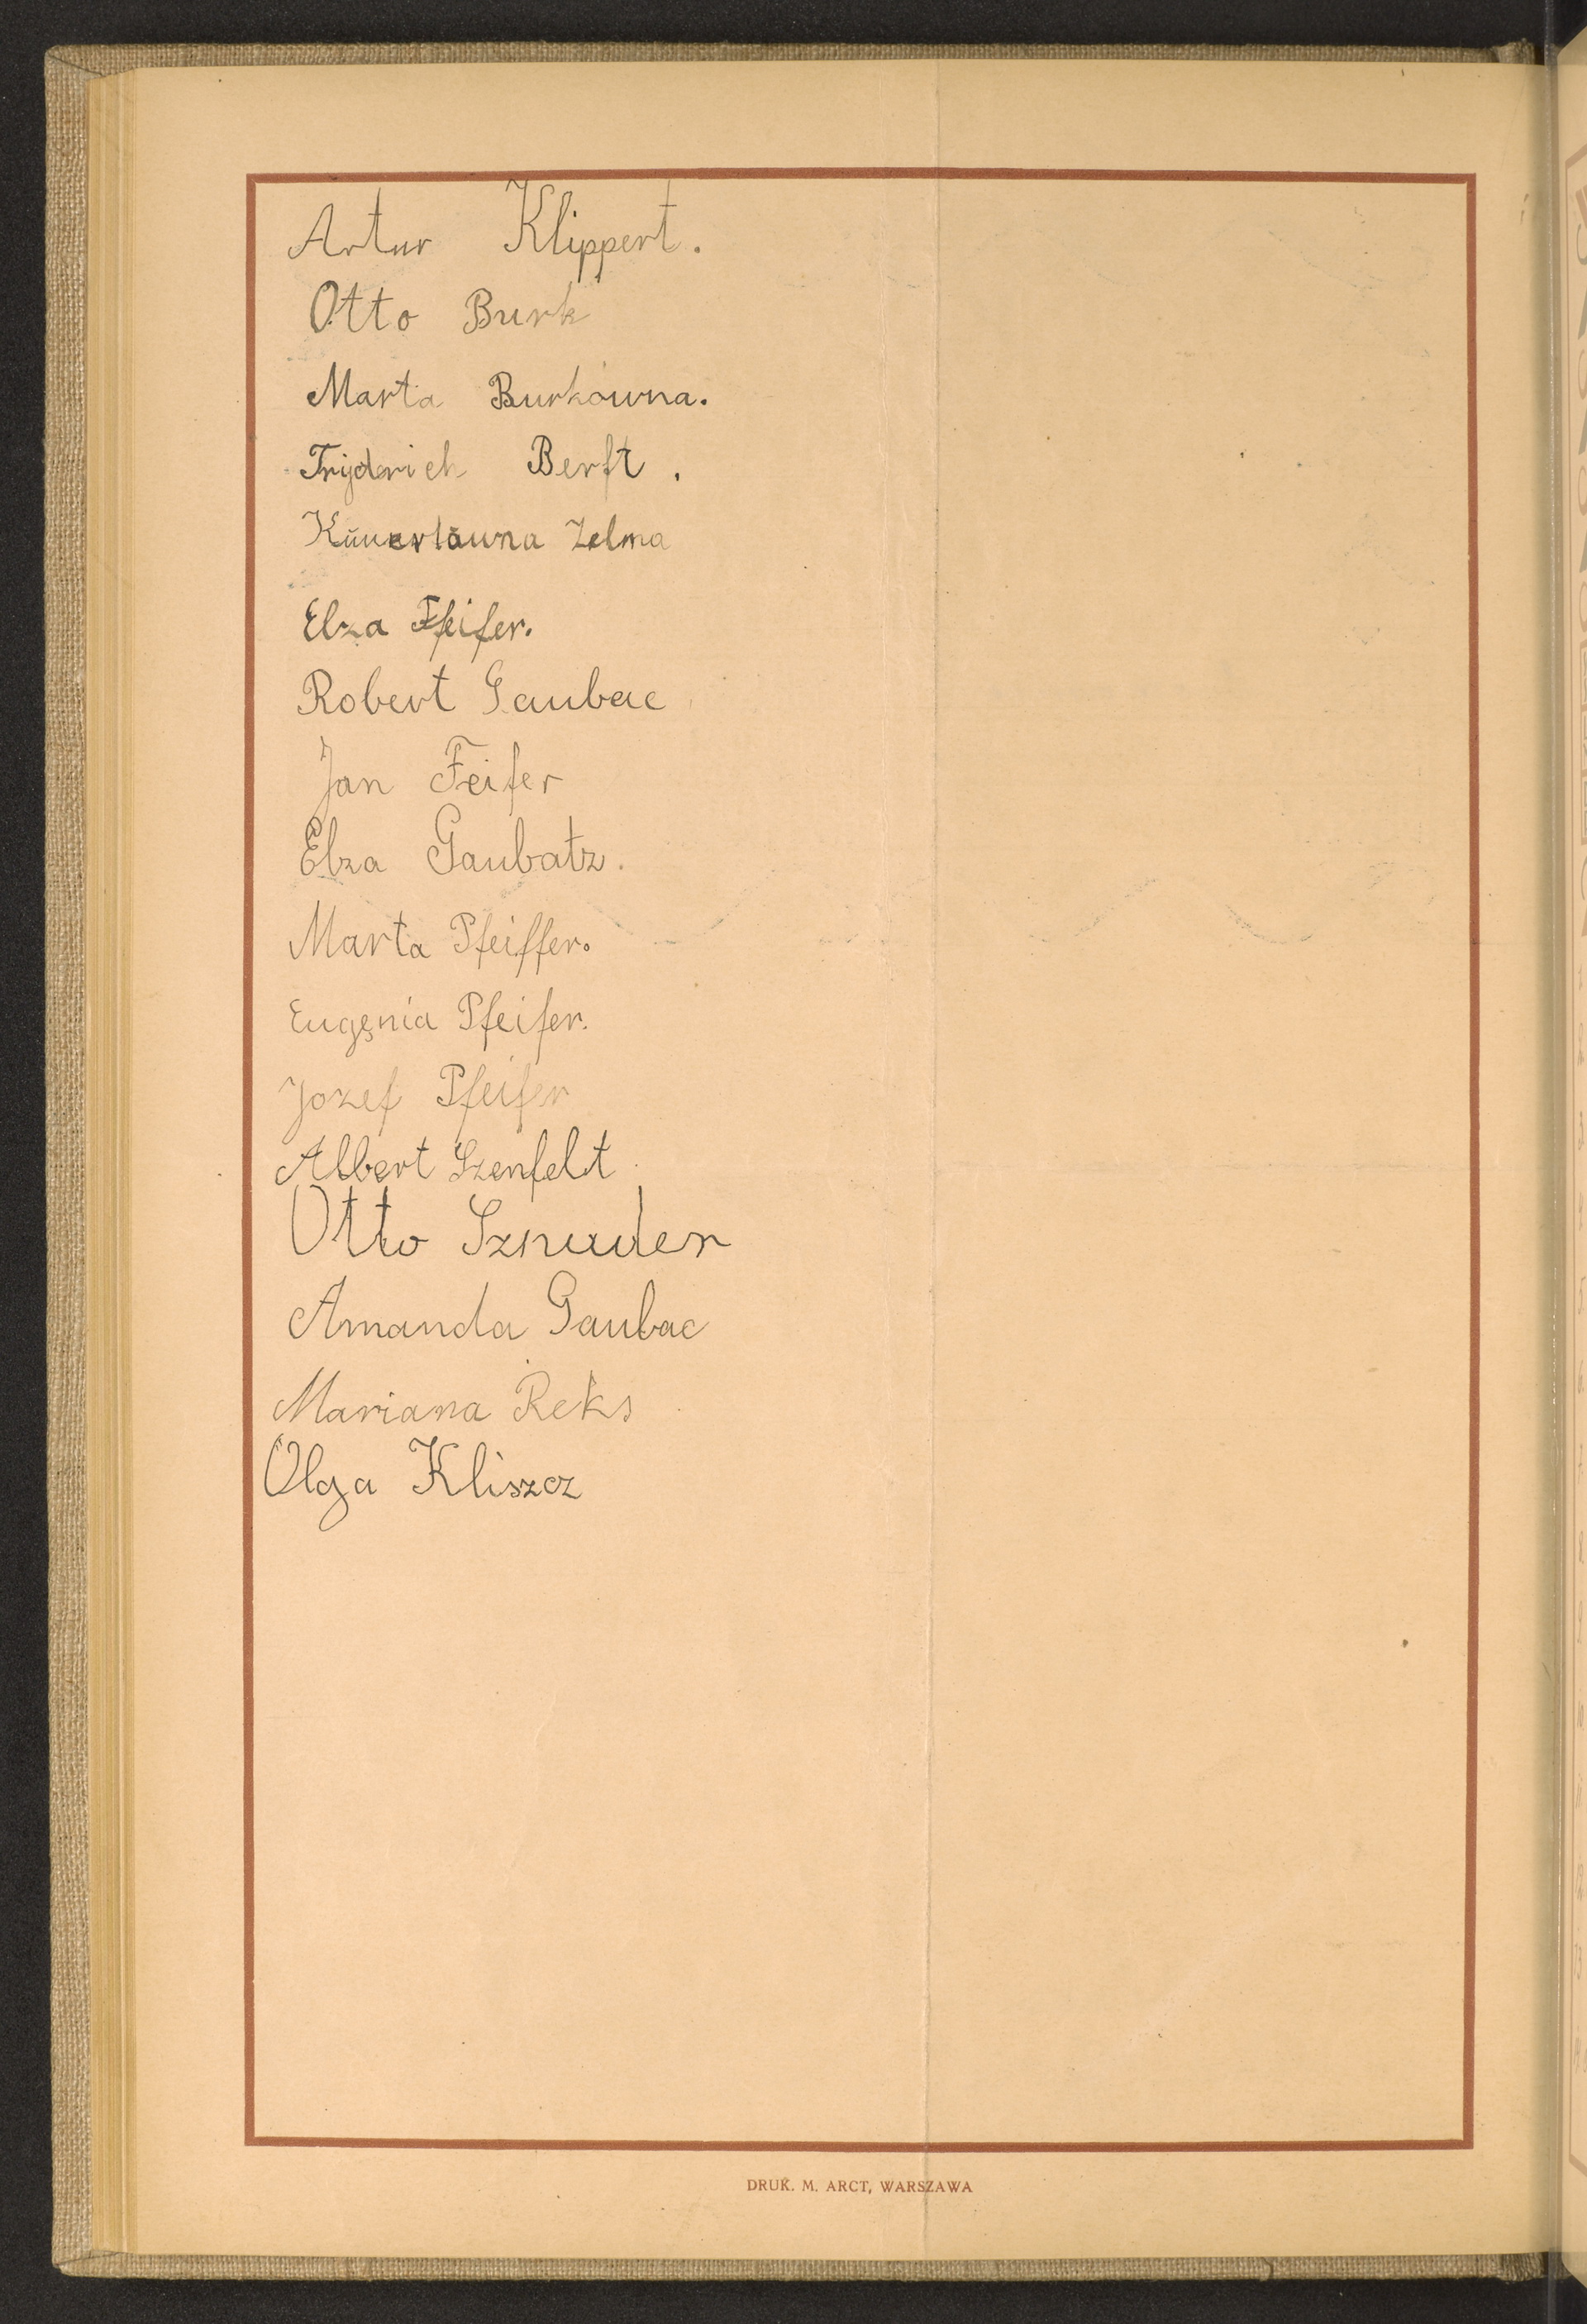 Artur Klippert.
Otto Burk
Marta Burkówna.
Frydrich Berft.
Zelma
Elza Pfeifer.
Robert Gaubac
Jan Feifer
Elza Gaubatz.
Marta Pfeiffer.
Eugenia Pfeifer.
Jozef Pfeifer
Albert Szenfelt
Otto Sznuder
Amanda Gaubac
Mariana Reks
Olga Kliszcz
DRUK. M. ARCT, WARSZAWA